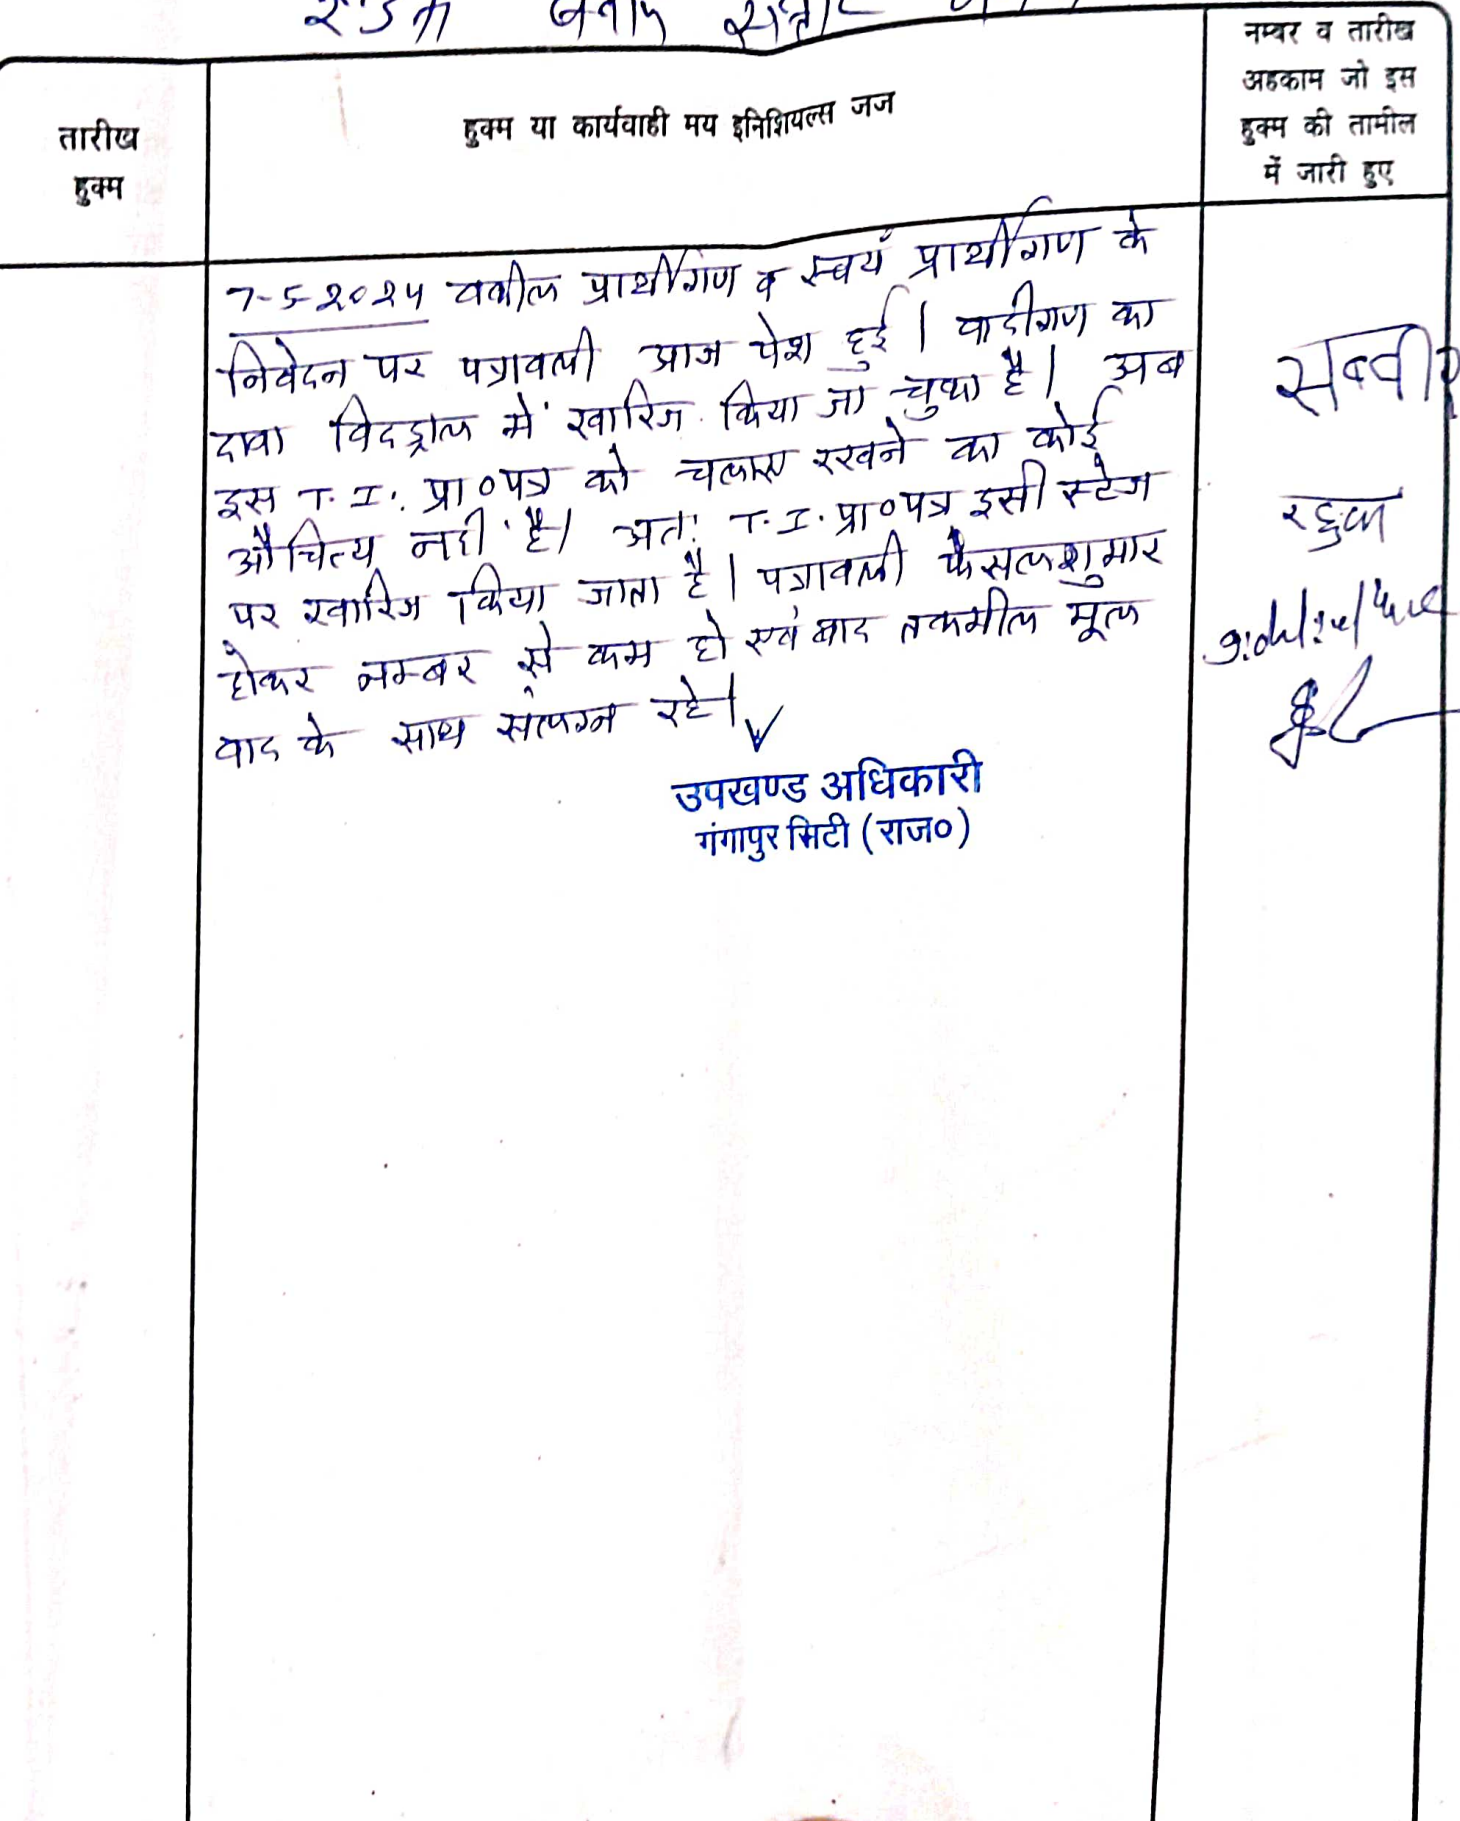 बनाम
तारीख
हुक्म
हुक्म या कार्यवाही मय इनिशियल्स जज
नम्बर व तारीख
अहकाम जो इस
हुक्म की तामील
में जारी हुए
7-5-2024 वकील प्रार्थीगण व स्वयं प्रार्थीगण के
निवेदन पर पत्रावली आज पेश हुई। वादीगण का
दावा विदड्राल में खारिज किया जा चुका है। अब
इस T.I. प्रा०पत्र को चलाए रखने का कोई
औचित्य नहीं है। अतः T.I. प्रा०पत्र इसी स्टेज
पर खारिज किया जाता है। पत्रावली फैसलशुमार
होकर नम्बर से कम हो एवं बाद तकमील मूल
वाद के साथ संलग्न रहे।
उपखण्ड अधिकारी
गंगापुर सिटी (राज०)